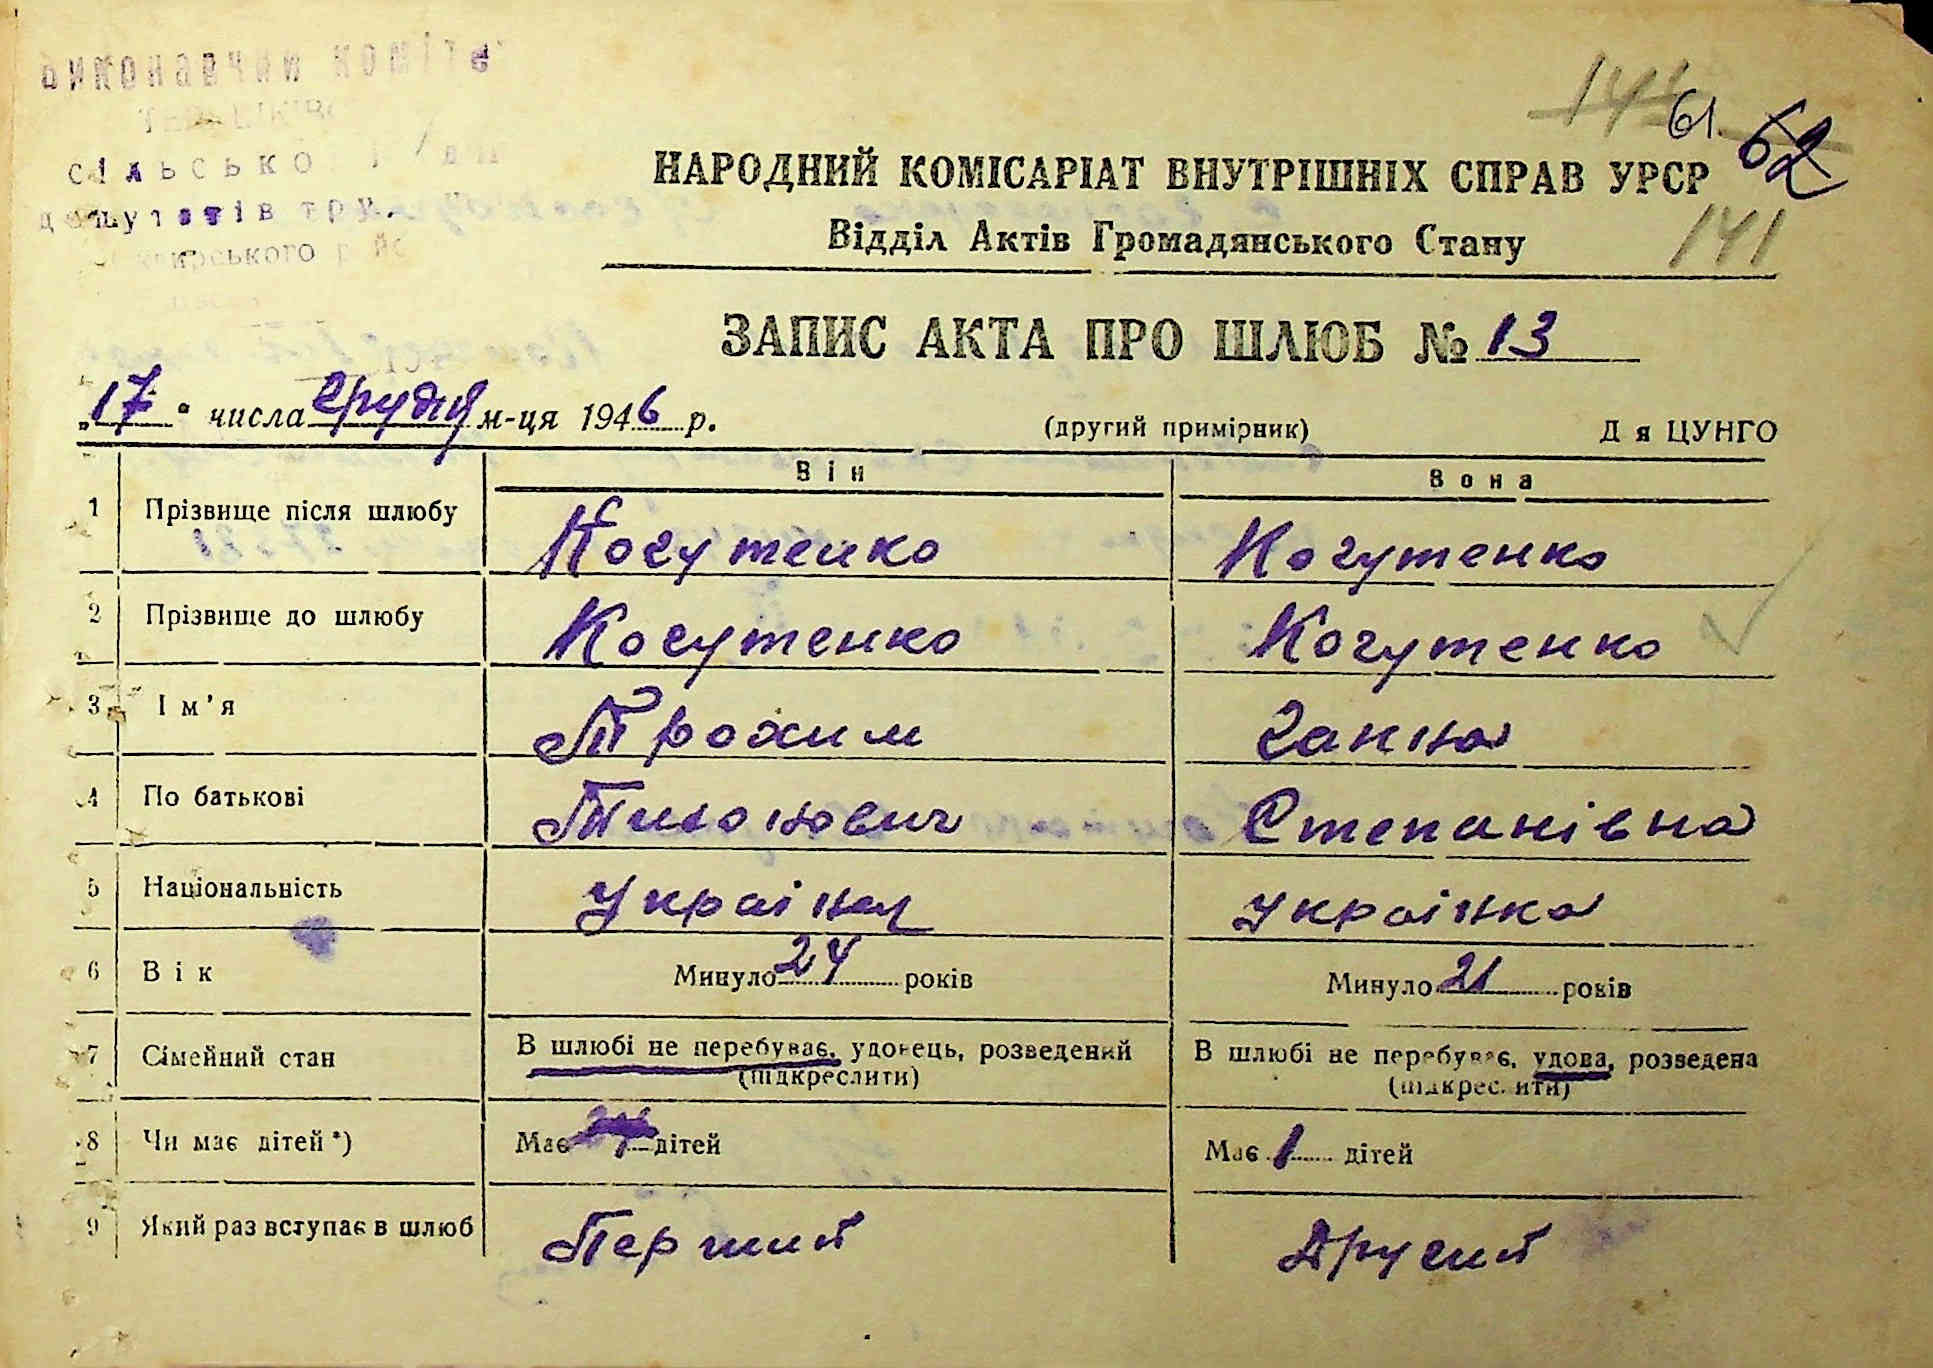 виконавчий коміте
сільсько
депутатів тру
144 61. 62
НАРОДНИЙ КОМІСАРІАТ ВНУТРІШНІХ СПРАВ УРСР
Відділ Актів Громадянського Стану
141
ЗАПИС АКТА ПРО ШЛЮБ № 13
„17" числа грудня м-ця 1946 р. (другий примірник) Д я ЦУНГО
Він Вона
1 Прізвище після шлюбу Когутенко Когутенко
2 Прізвище до шлюбу Когутенко Когутенко
3 Ім'я Трохим Ганна
4 По батькові Тихонович Степанівна
5 Національність Українец Українка
6 Вік Минуло 24 років Минуло 21 років
7 Сімейний стан В шлюбі не перебуває, удовець, розведений В шлюбі не перебуває, удова, розведена
(підкреслити) (підкреслити)
8 Чи має дітей*) Має дітей Має 1 дітей
9 Який раз вступає в шлюб Перший Другий